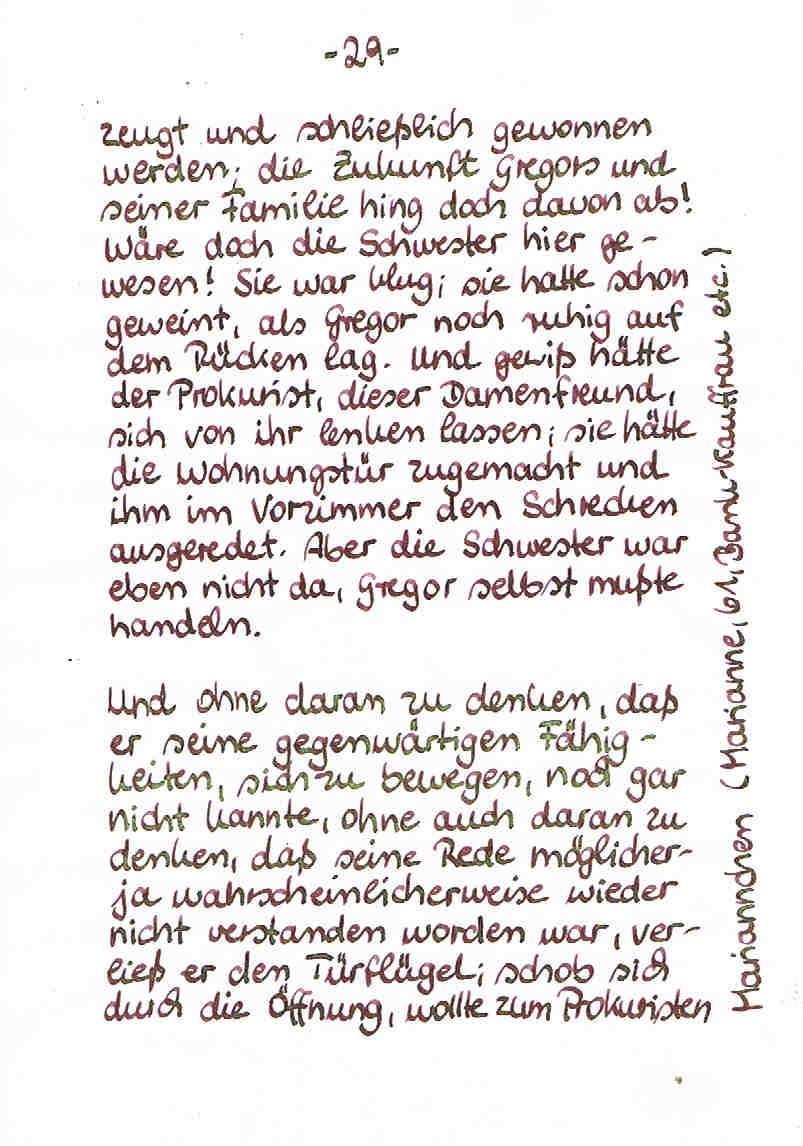 -29-
zeugt und schließlich gewonnen
werden; die Zukunft Gregors und
seiner Familie hing doch davon ab!
Wäre doch die Schwester hier ge-
wesen! Sie war klug; sie hatte schon
geweint, als Gregor noch ruhig auf
dem Rücken lag. Und gewiß hätte
der Prokurist, dieser Damenfreund,
sich von ihr lenken lassen; sie hätte
die Wohnungstür zugemacht und
ihm im Vorzimmer den Schrecken
ausgeredet. Aber die Schwester war
eben nicht da, Gregor selbst mußte
handeln.
Und ohne daran zu denken, daß
er seine gegenwärtigen Fähig-
keiten, sich zu bewegen, noch gar
nicht kannte, ohne auch daran zu
denken, daß seine Rede möglicher-
ja wahrscheinlicherweise wieder
nicht verstanden worden war, ver-
ließ er den Türflügel; schob sich
durch die Öffnung, wollte zum Prokuristen
Mariannchen (Marianne, 61, Bank-Kauffrau etc.)